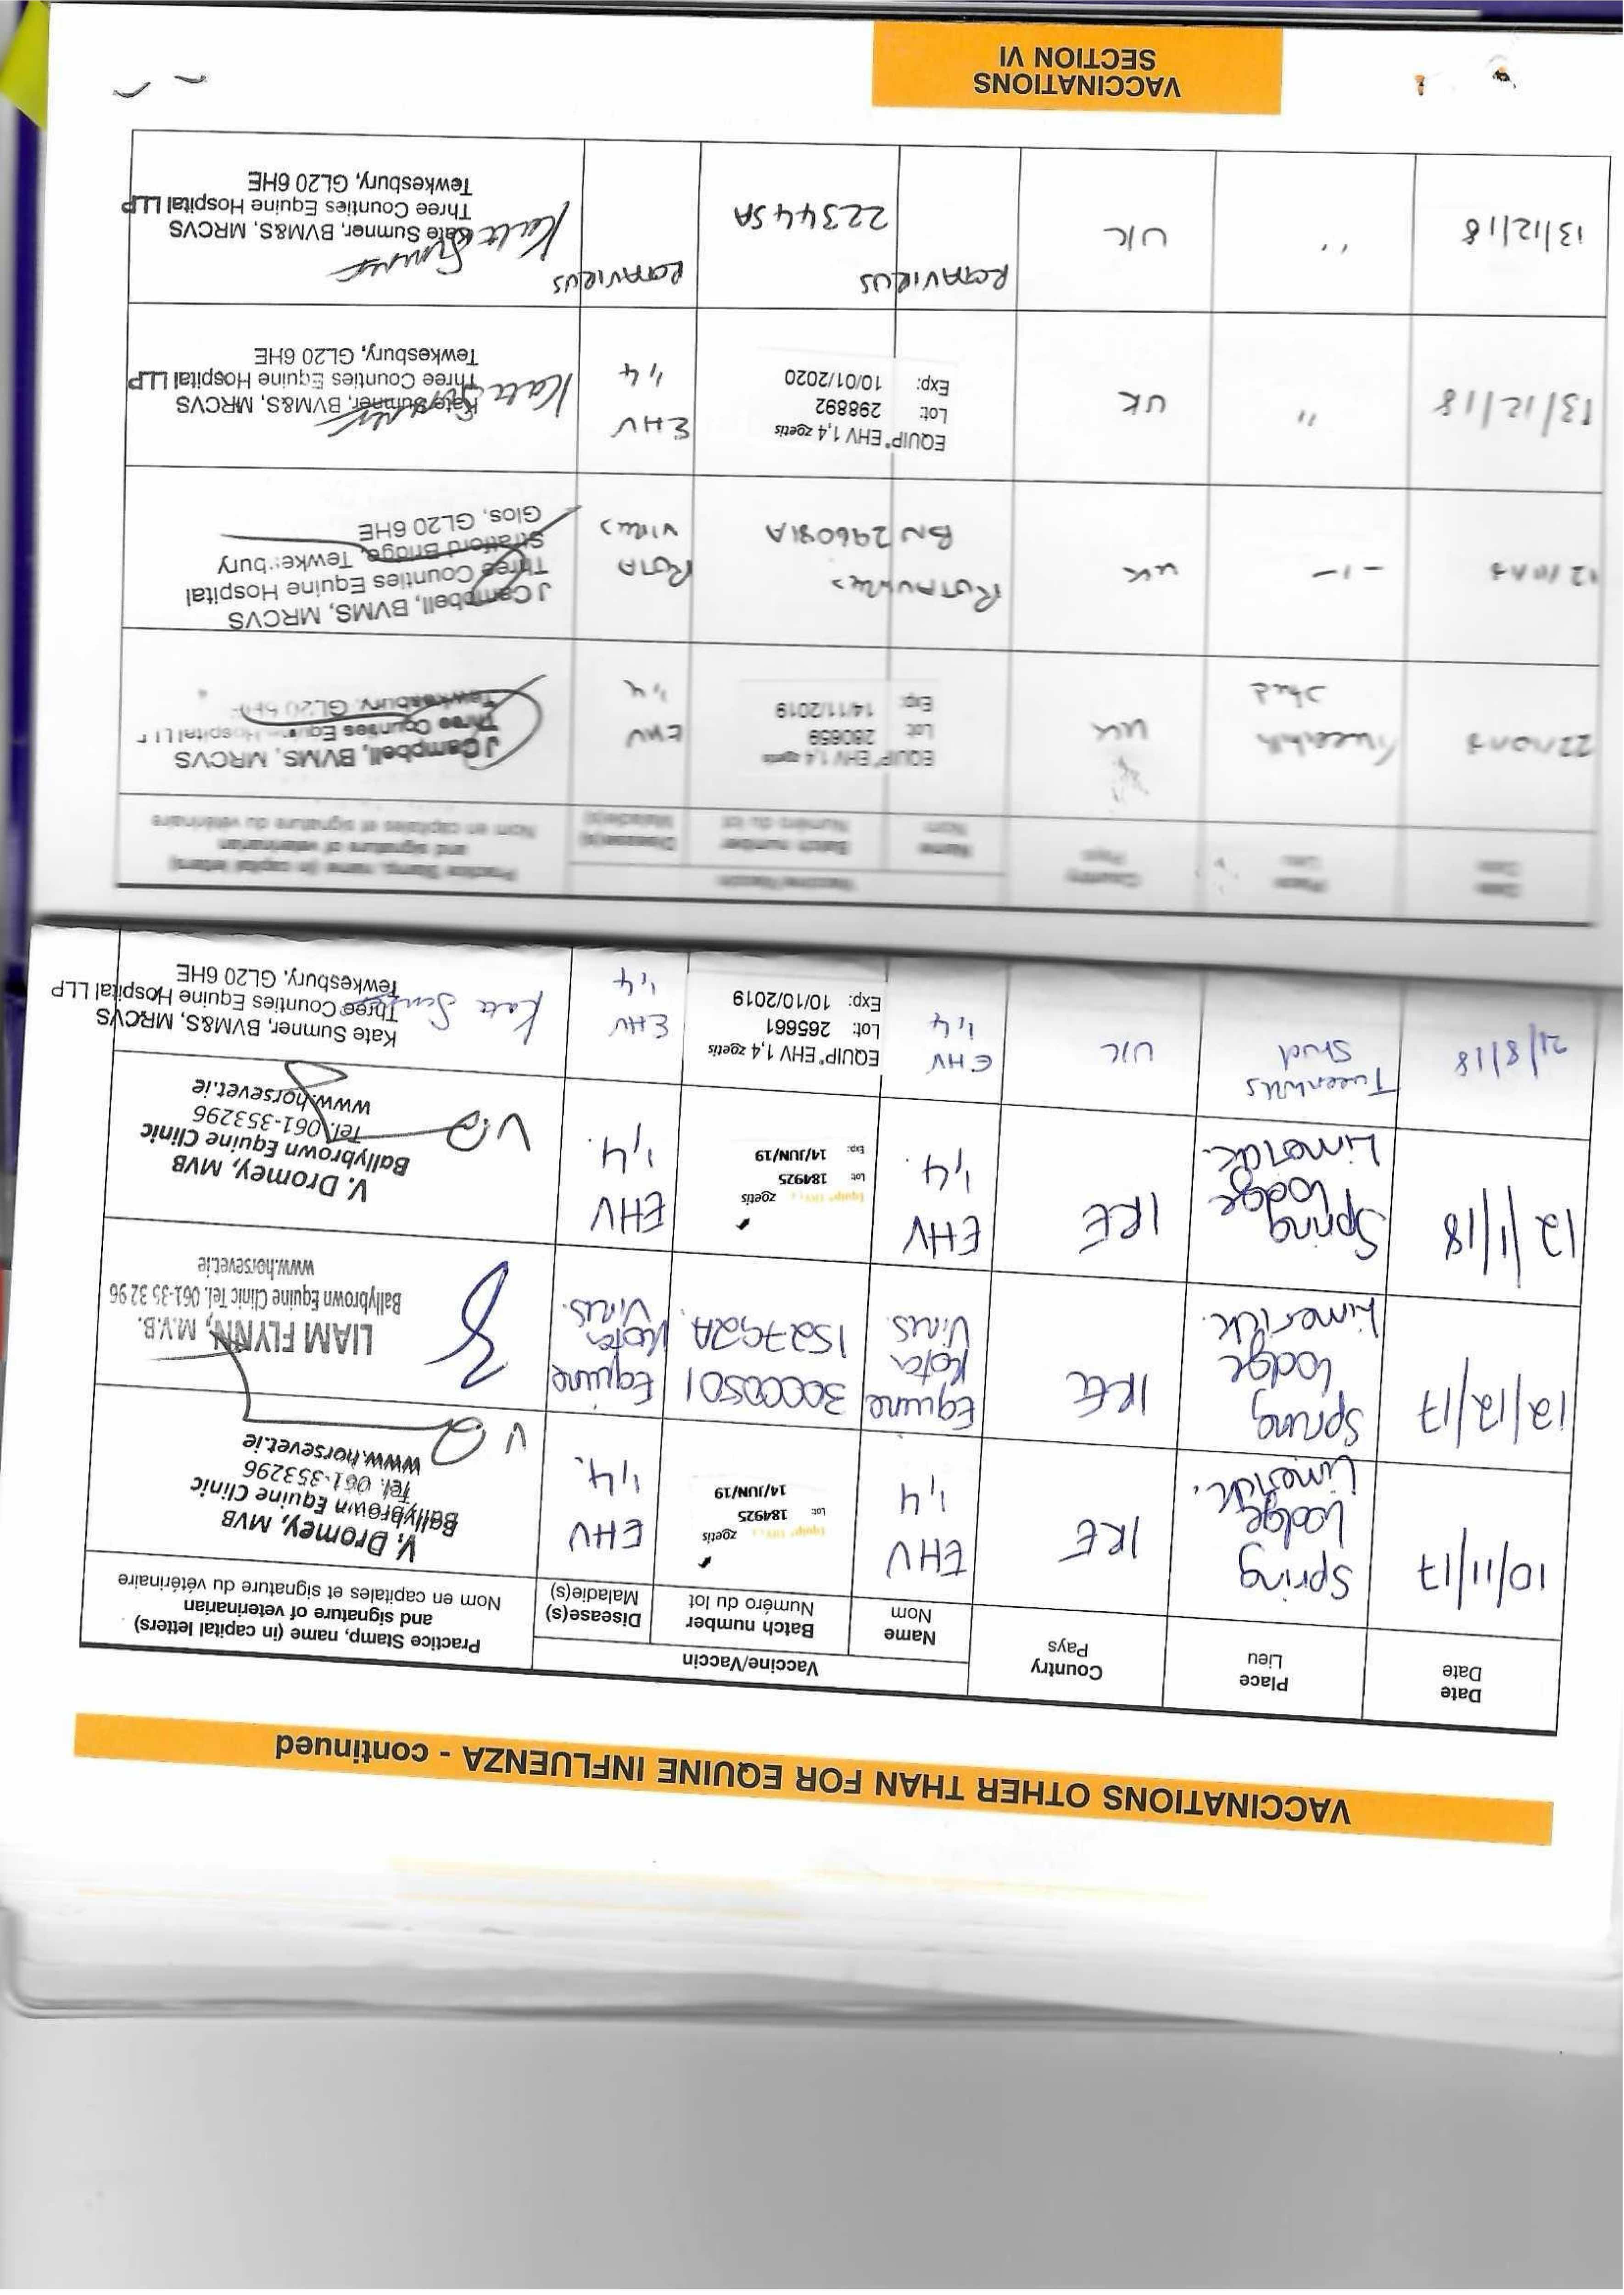 VACCINATIONS OTHER THAN FOR EQUINE INFLUENZA - continued
Date
Date
Place
Lieu
Country
Pays
Vaccine/Vaccin
Name
Nom
Batch number
Numéro du lot
Disease(s)
Maladie(s)
Practice Stamp, name (in capital letters)
and signature of veterinarian
Nom en capitales et signature du vétérinaire
10/11/17
Spring
Lodge
Limerick.
IRE
EHV
1,4
zoetis
Lot: 184925
14/JUN/19
EHV
1,4.
V. Dromey, MVB
Ballybrown Equine Clinic
Tel. 061-353296
www.horsevet.ie
12/12/17
Spring
Lodge
Limerick.
IRE
Equine
Rota
Virus
30000501
152792A.
Equine
Rota
Virus.
LIAM FLYNN, M.V.B.
Ballybrown Equine Clinic Tel. 061-35 32 96
www.horsevet.ie
12/1/18
Spring
Lodge
Limerick.
IRE
EHV
1,4.
zoetis
Lot: 184925
Exp: 14/JUN/19
EHV
1,4.
V. Dromey, MVB
Ballybrown Equine Clinic
Tel. 061-353296
www.horsevet.ie
21/8/18
Tweenhills
Stud
UK
EHV
1,4
EQUIP® EHV 1,4 zoetis
Lot: 265661
Exp: 10/10/2019
EHV
1,4
Kate Sumner, BVM&S, MRCVS
Three Counties Equine Hospital LLP
Tewkesbury, GL20 6HE
Date
Date
Place
Lieu
Country
Pays
Vaccine/Vaccin
Name
Nom
Batch number
Numéro du lot
Disease(s)
Maladie(s)
Practice Stamp, name (in capital letters)
and signature of veterinarian
Nom en capitales et signature du vétérinaire
Tweenhills
Stud
UK
EQUIP® EHV 1,4 zoetis
Lot: 280659
Exp: 14/11/2019
EHV
1,4
J Campbell, BVMS, MRCVS
Three Counties Equine Hospital LLP
Tewkesbury, GL20 6HE
UK
Rotavirus
BN 296081A
ROTA
VIRUS
J Campbell, BVMS, MRCVS
Three Counties Equine Hospital
Stratford Bridge, Tewkesbury
Glos, GL20 6HE
13/12/18
"
UK
EQUIP® EHV 1,4 zoetis
Lot: 298892
Exp: 10/01/2020
EHV
1,4
Kate Sumner, BVM&S, MRCVS
Three Counties Equine Hospital LLP
Tewkesbury, GL20 6HE
13/12/18
"
UK
ROTAVIRUS
223445A
ROTAVIRUS
Kate Sumner, BVM&S, MRCVS
Three Counties Equine Hospital LLP
Tewkesbury, GL20 6HE
VACCINATIONS
SECTION VI